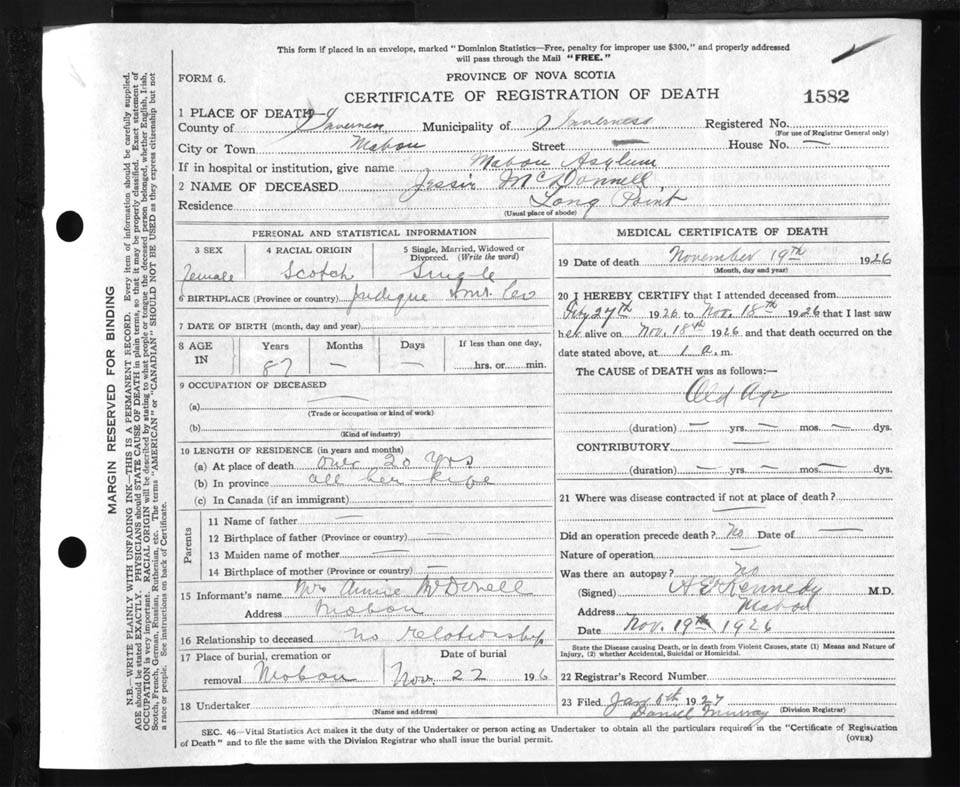 This form if placed in an envelope, marked "Dominion Statistics—Free, penalty for improper use $300," and properly addressed
will pass through the Mail "FREE."
FORM 6.
PROVINCE OF NOVA SCOTIA
CERTIFICATE OF REGISTRATION OF DEATH
1582
1 PLACE OF DEATH—
County of Inverness Municipality of Inverness Registered No.
(For use of Registrar General only)
City or Town Mabou Street — House No. —
If in hospital or institution, give name Mabou Asylum
2 NAME OF DECEASED Jessie McDonnell
Residence Long Point
(Usual place of abode)
PERSONAL AND STATISTICAL INFORMATION
3 SEX 4 RACIAL ORIGIN 5 Single, Married, Widowed or
Divorced. (Write the word)
Female Scotch Single
6 BIRTHPLACE (Province or country) Judique Inv. Co
7 DATE OF BIRTH (month, day and year)
8 AGE IN Years Months Days If less than one day,
87 — — hrs. or min.
9 OCCUPATION OF DECEASED
(a) —
(Trade or occupation or kind of work)
(b)
(Kind of industry)
10 LENGTH OF RESIDENCE (in years and months)
(a) At place of death over 20 yrs
(b) In province all her life
(c) In Canada (if an immigrant)
Parents
11 Name of father —
12 Birthplace of father (Province or country) —
13 Maiden name of mother —
14 Birthplace of mother (Province or country) —
15 Informant's name Mrs Annie McDonell
Address Mabou
16 Relationship to deceased no relationship
17 Place of burial, cremation or Date of burial
removal Mabou Nov. 22 1926
18 Undertaker
(Name and address)
MEDICAL CERTIFICATE OF DEATH
19 Date of death November 19th 1926
(Month, day and year)
20 I HEREBY CERTIFY that I attended deceased from
27th 1926 to Nov. 18th 1926 that I last saw
her alive on Nov. 18th 1926 and that death occurred on the
date stated above, at 1 a. m.
The CAUSE of DEATH was as follows:—
Old Age
(duration) — yrs. — mos. — dys.
CONTRIBUTORY —
(duration) — yrs. — mos. — dys.
21 Where was disease contracted if not at place of death?
—
Did an operation precede death? No Date of —
Nature of operation —
Was there an autopsy? No
(Signed) A E Kennedy M.D.
Address Mabou
Date Nov. 19th 1926
State the Disease causing Death, or in death from Violent Causes, state (1) Means and Nature of
Injury, (2) whether Accidental, Suicidal or Homicidal.
22 Registrar's Record Number
23 Filed Jan 1927
Daniel Murray
(Division Registrar)
SEC. 46—Vital Statistics Act makes it the duty of the Undertaker or person acting as Undertaker to obtain all the particulars required in the "Certificate of Registration
of Death" and to file the same with the Division Registrar who shall issue the burial permit.
(OVER)
MARGIN RESERVED FOR BINDING
N.B.—WRITE PLAINLY WITH UNFADING INK—THIS IS A PERMANENT RECORD. Every item of information should be carefully supplied.
AGE should be stated EXACTLY. PHYSICIANS should STATE CAUSE OF DEATH in plain terms, so that it may be properly classified. Exact statement of
OCCUPATION is very important. RACIAL ORIGIN will be described by stating to what people or tongue the deceased person belonged, whether English, Irish,
Scotch, French, German, Russian, Ruthenian, etc. The terms "AMERICAN" or "CANADIAN" SHOULD NOT BE USED as they express citizenship but not
a race or people. See instructions on back of Certificate.